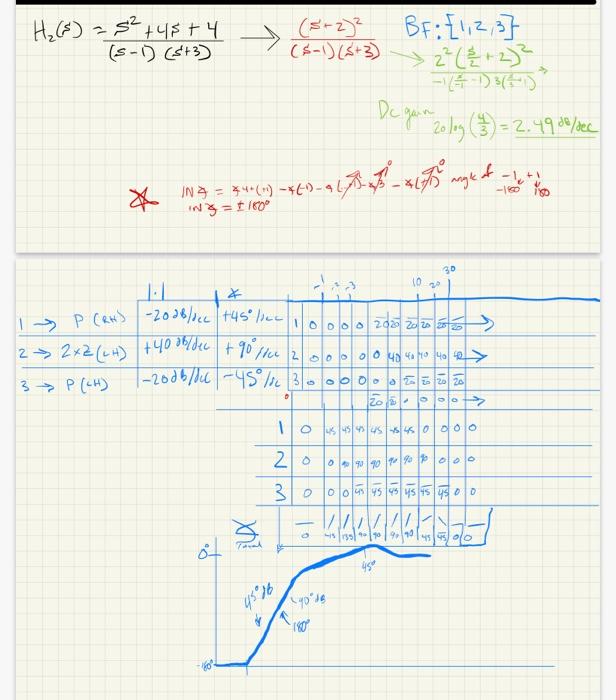 H₂(s) = s² + 4s + 4 / (s-1) (s+3) → (s+2)² / (s-1)(s+3)
BF: {1,2,3}
→ 2²(s/2 + 2)² / -1(s/-1 -1) 3(s/3 +1)
DC gain 20 log(4/3) = 2.49 dB/dec
IN ∡ = ∡4+(+1) -∡(-1) -∡
angle of -1, +1
-180 180
IN ∡ = ±180°
|·| ∡
.1 .2 .3 10 20 30
1 → P (RH) -20 dB/dec +45°/dec 1 0 0 0 0 20 20 20 20 20 20 →
2 → 2×Z (LH) +40 dB/dec +90°/dec 2 0 0 0 0 0 40 40 40 40 40 →
3 → P (LH) -20 dB/dec -45°/dec 3 0 0 0 0 0 0 20 20 20 20
20 20 0 0 0 0 →
1 0 45 45 45 45 45 45 0 0 0 0
2 0 0 90 90 90 90 90 90 0 0 0
3 0 0 0 45 45 45 45 45 45 0 0
∡ Total 0 45 135 90 90 90 90 45 45 0 0
0°
45°
45° dB
90° dB
180°
-180°